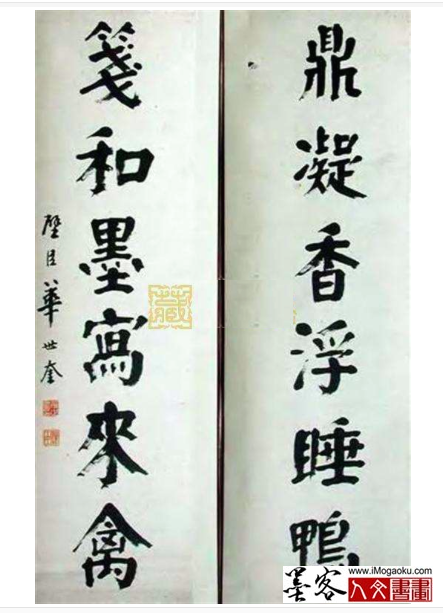 鼎凝香浮睡鴨
箋和墨寫來禽
璧臣華世奎
藏
www.iMogaoku.com
墨客人文書畫